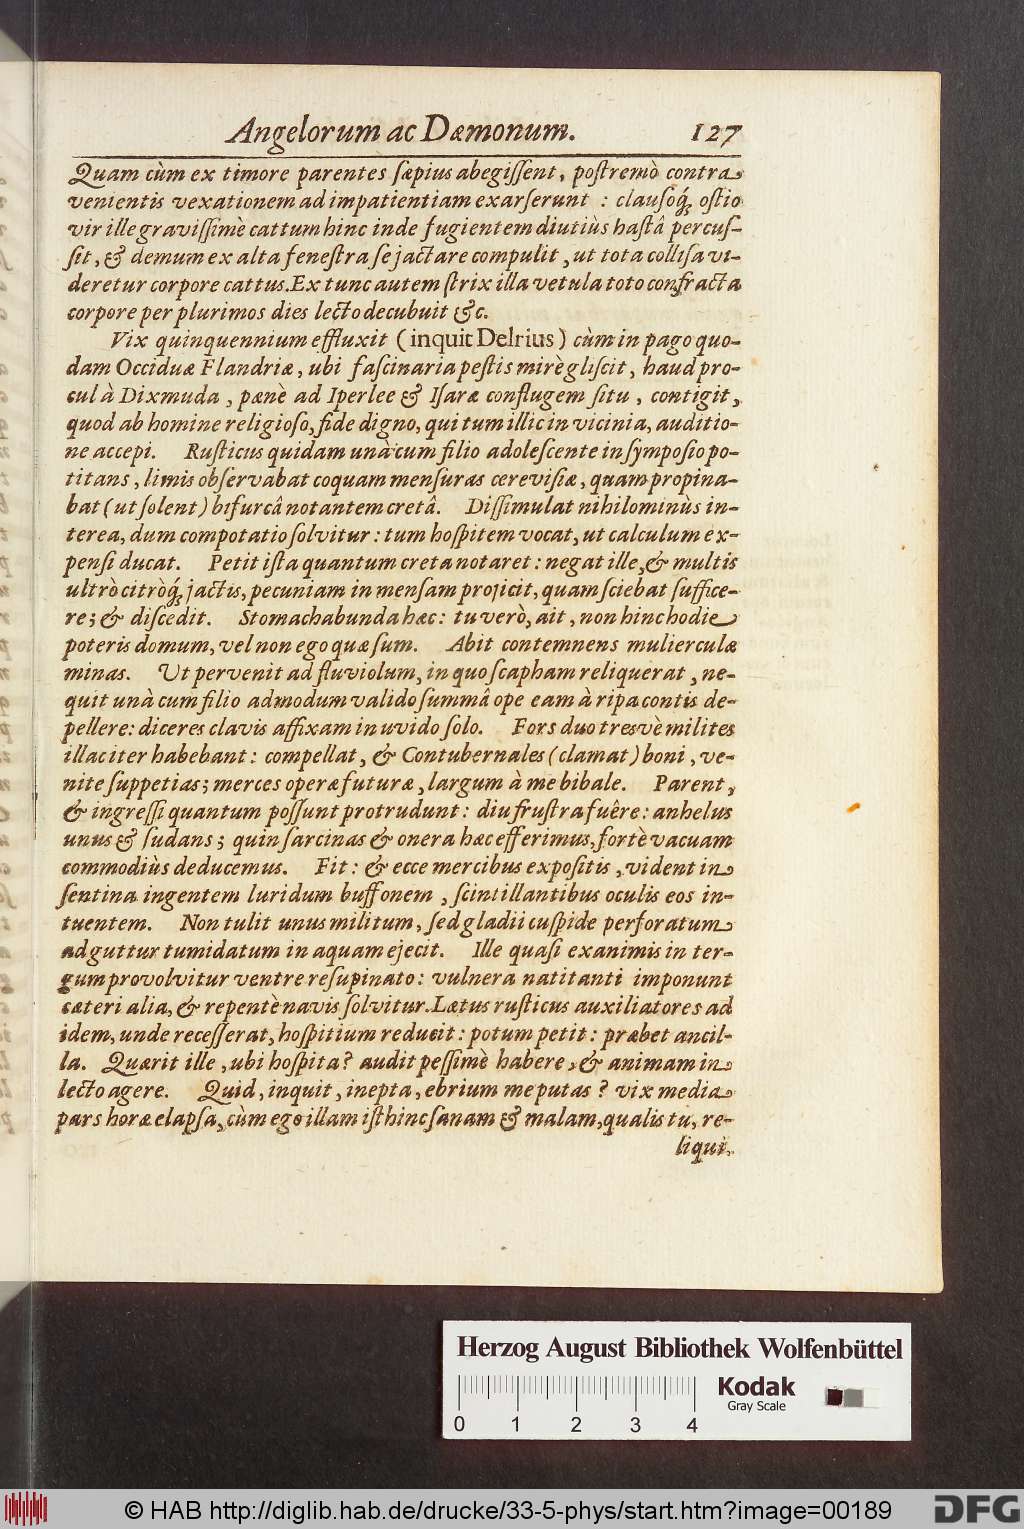 Angelorum ac Dæmonum. 127
Quam cùm ex timore parentes ſæpius abegiſſent, poſtremò contra
venientis vexationem ad impatientiam exarſerunt : clauſoq́ʒ oſtio
vir ille graviſſimè cattum hinc inde fugientem diutiùs haſtâ percuſ-
ſit, & demum ex alta feneſtra ſe jactare compulit, ut tota colliſa vi-
deretur corpore cattus. Ex tunc autem ſtrix illa vetula toto confracta
corpore per plurimos dies lecto decubuit &c.
Vix quinquennium effluxit (inquit Delrius) cùm in pago quo-
dam Occiduæ Flandriæ, ubi faſcinaria peſtis mirè gliſcit, haud pro-
cul à Dixmuda, pænè ad Iperlee & Iſaræ conflugem ſitu, contigit,
quod ab homine religioſo, fide digno, qui tum illic in vicinia, auditio-
ne accepi. Ruſticus quidam unà cum filio adoleſcente in ſympoſio po-
titans, limis obſervabat coquam menſuras cereviſiæ, quam propina-
bat (ut ſolent) bifurcâ notantem cretâ. Diſſimulat nihilominùs in-
terea, dum compotatio ſolvitur: tum hoſpitem vocat, ut calculum ex-
penſi ducat. Petit iſta quantum creta notaret: negat ille, & multis
ultrò citròq́ʒ jactis, pecuniam in menſam projicit, quam ſciebat ſuffice-
re; & diſcedit. Stomachabunda hæc: tu verò, ait, non hinc hodie
poteris domum, vel non ego quæ ſum. Abit contemnens mulierculæ
minas. Ut pervenit ad fluviolum, in quo ſcapham reliquerat, ne-
quit unà cum filio admodum valido ſummâ ope eam à ripa contis de-
pellere: diceres clavis affixam in uvido ſolo. Fors duo tresvè milites
illac iter habebant: compellat, & Contubernales (clamat) boni, ve-
nite ſuppetias; merces operæ futuræ, largum à me bibale. Parent,
& ingreſſi quantum poſſunt protrudunt: diu fruſtra fuêre: anhelus
unus & ſudans; quin ſarcinas & onera hæc efferimus, fortè vacuam
commodiùs deducemus. Fit: & ecce mercibus expoſitis, vident in
ſentina ingentem luridum buffonem, ſcintillantibus oculis eos in-
tuentem. Non tulit unus militum, ſed gladii cuſpide perforatum
ad guttur tumidatum in aquam ejecit. Ille quaſi exanimis in ter-
gum provolvitur ventre reſupinato: vulnera natitanti imponunt
cæteri alia, & repentè navis ſolvitur. Lætus ruſticus auxiliatores ad
idem, unde receſſerat, hoſpitium reducit: potum petit: præbet ancil-
la. Quærit ille, ubi hoſpita? audit peſſimè habere, & animam in
lecto agere. Quid, inquit, inepta, ebrium me putas? vix media
pars horæ elapſa, cùm ego illam iſthinc ſanam & malam, qualis tu, re-
liqui.
Herzog August Bibliothek Wolfenbüttel
Kodak
Gray Scale
0 1 2 3 4
© HAB http://diglib.hab.de/drucke/33-5-phys/start.htm?image=00189 DFG